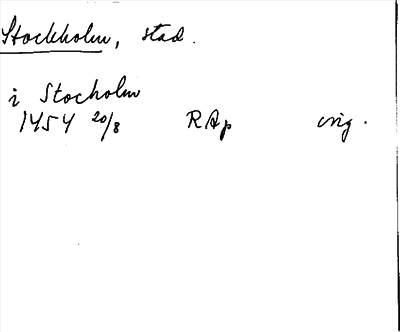 Stockholm, stad.
i Stocholm
1454 20/8 RAp orig.